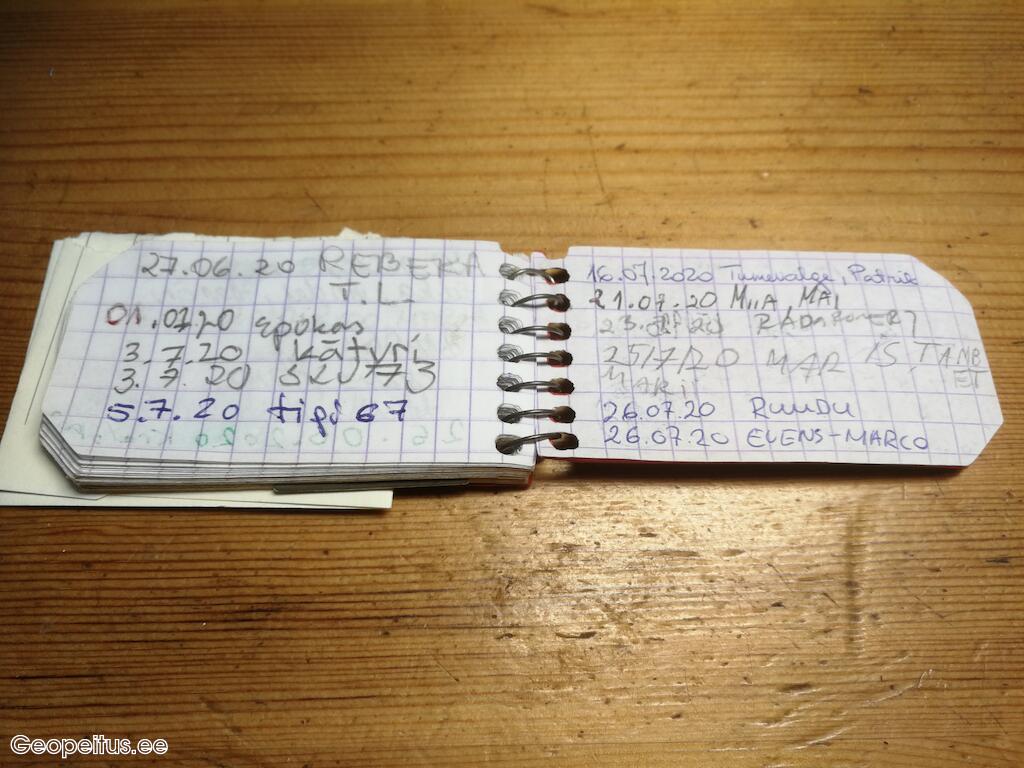 27.06.20 REBEKA
T.L
01.07.20 epokas
3.7.20 kätyri
3.7.20
5.7.20 tipi 67
16.07.2020 Tumevalge, Patrik
21.07.20 MIIA, MAI
23.07.20
25/7/20 MAR
MARii
26.07.20 RUUDU
26.07.20 EVENS-MARCO
Geopeitus.ee